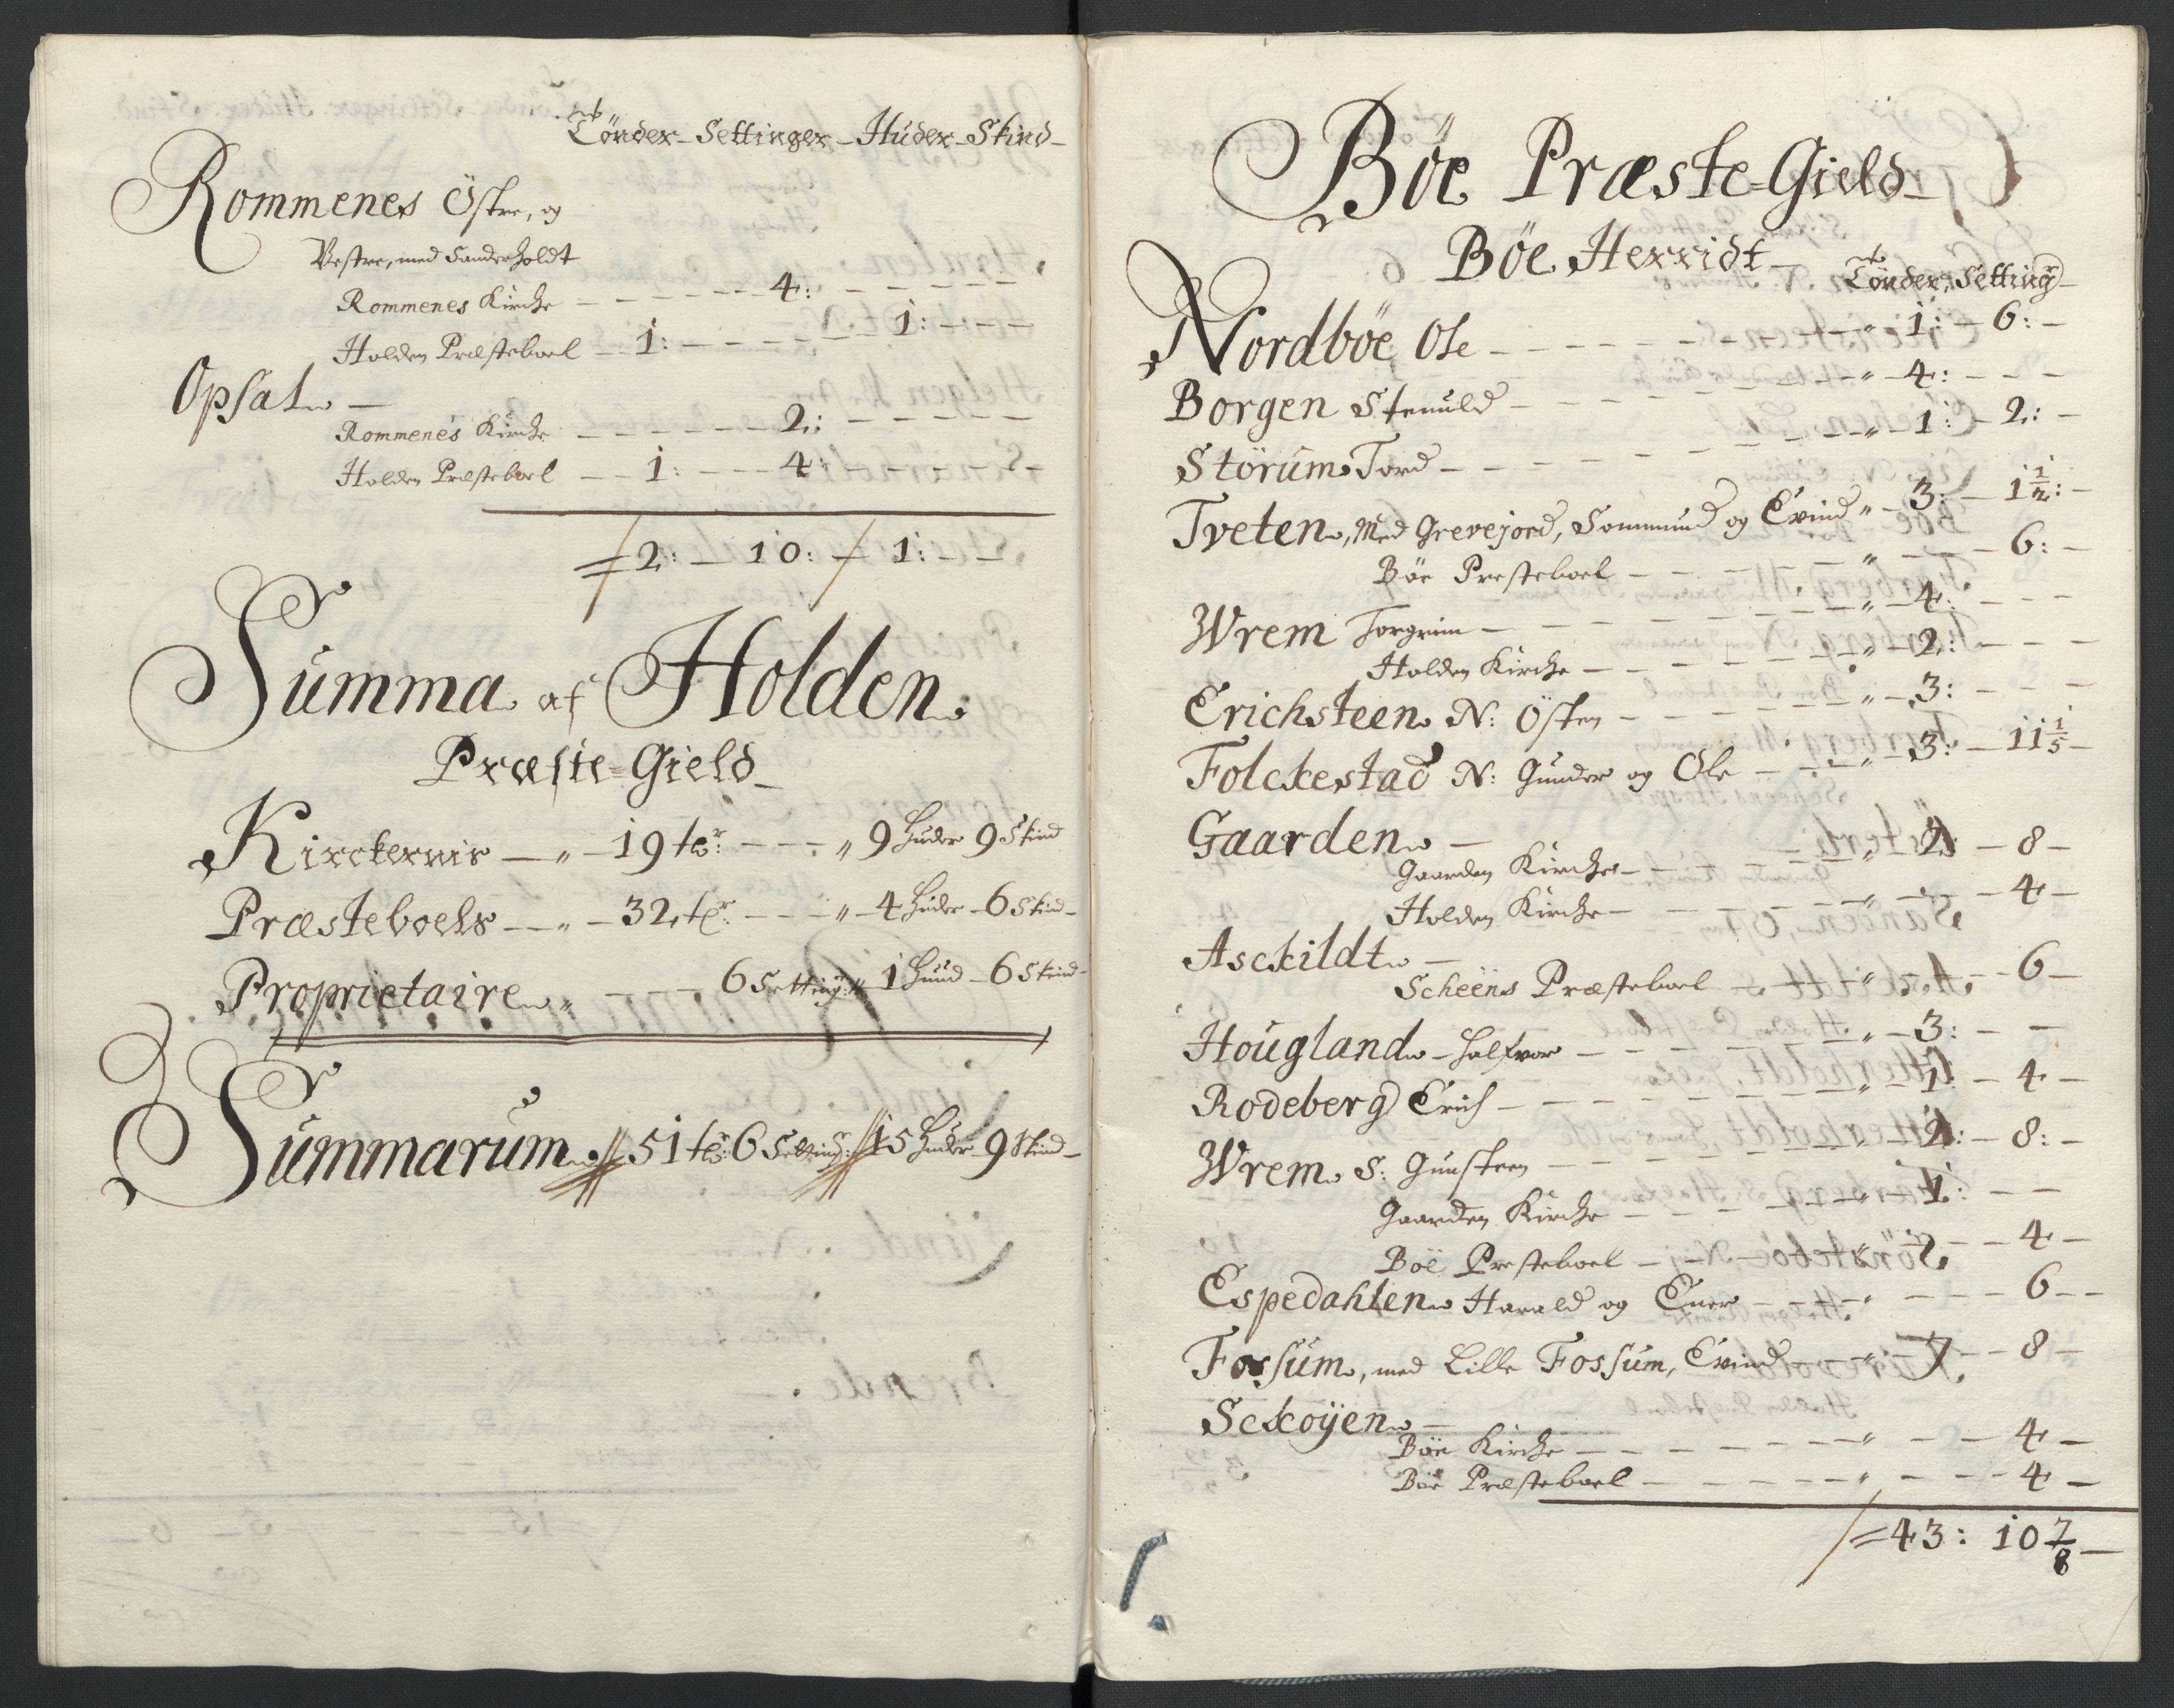 Tönder - Settinger - Huder - Skind -
Rommenes Östre, og
Vestre, med Sanderholdt
Rommenes Kirche - - - - - - 4: - - - - - -
Holden Præsteboel - 1: - - - - - - 1: - - -
Opsal -
Rommenes Kirche - - - - - - 2: - - - - - -
Holden Præsteboel - - 1: - - - 4: - - - - - -
= 2: - 10: - 1: - -
Summa af Holden
Præste=Gield -
Kirckernis - „ - 19 tdr: - - - „ 9 Huder 9 Skind
Præsteboels - - „ - 32 tdr: - - - „ - 4 Huder - 6 Skind -
Proprietaire „ - - - 6 Setting: „ 1 Huud - 6 Skind -
Summarum 51 tdr: 6 Setting: 15 Huder 9 Skind -
Böe Præste=Gield -
Böe Herridt -
Tönder, Setting -
Nordböe Ole - - - - - - - - „ 1: - 6: -
Borgen Stenuld - - - - - - - „ - 4: - - -
Störum Tord - - - - - - - - „ - 1: - 2: -
Tveten, Med Grevejord, Sommund og Evind „ - 3: - 1 1/2: -
Böe Presteboel - - - - - „ - - - 6: -
Wrem Torgrim - - - - - - - - „ - 4: - - -
Holden Kirche - - - - - - - „ - 2: - - -
Erichsteen N: Östen - - - - - - - „ - 3: - - -
Folckestad N: Gunder og Ole - - - „ - 3: - 11 1/5 -
Gaarden -
Gaarden Kirche - - - - - „ 2: - 8 -
Holden Kirche - - - - - - „ - - - 4 -
Asckildt -
Scheens Præsteboel - - - „ - - - 6 -
Hougland - Halfvor - - - - - - „ - 3: - -
Rodeberg Erich - - - - - - - - „ - 1: - 4 -
Wrem S: Gunsteen - - - - - - - - 8: -
Gaarden Kirche - - - - - - „ - 1: - -
Böe Presteboel - - - - - - 4 -
Espedahlen Harald og Ener - - - - „ - - - 6 - -
Fossum, med Lille Fossum, Evind - - „ - - - 8 -
Sckoÿen -
Böe Kirche - - - - - - - „ - - 4 -
Böe Præsteboel - - - - - - „ - - - 4 -
= 43: 10 7/8 -